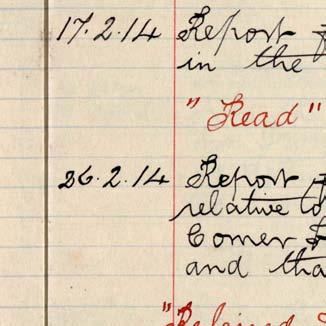 17.2.14 Report
in the
"Read"
26.2.14 Report
relative to
Corner
and tha
"Refer